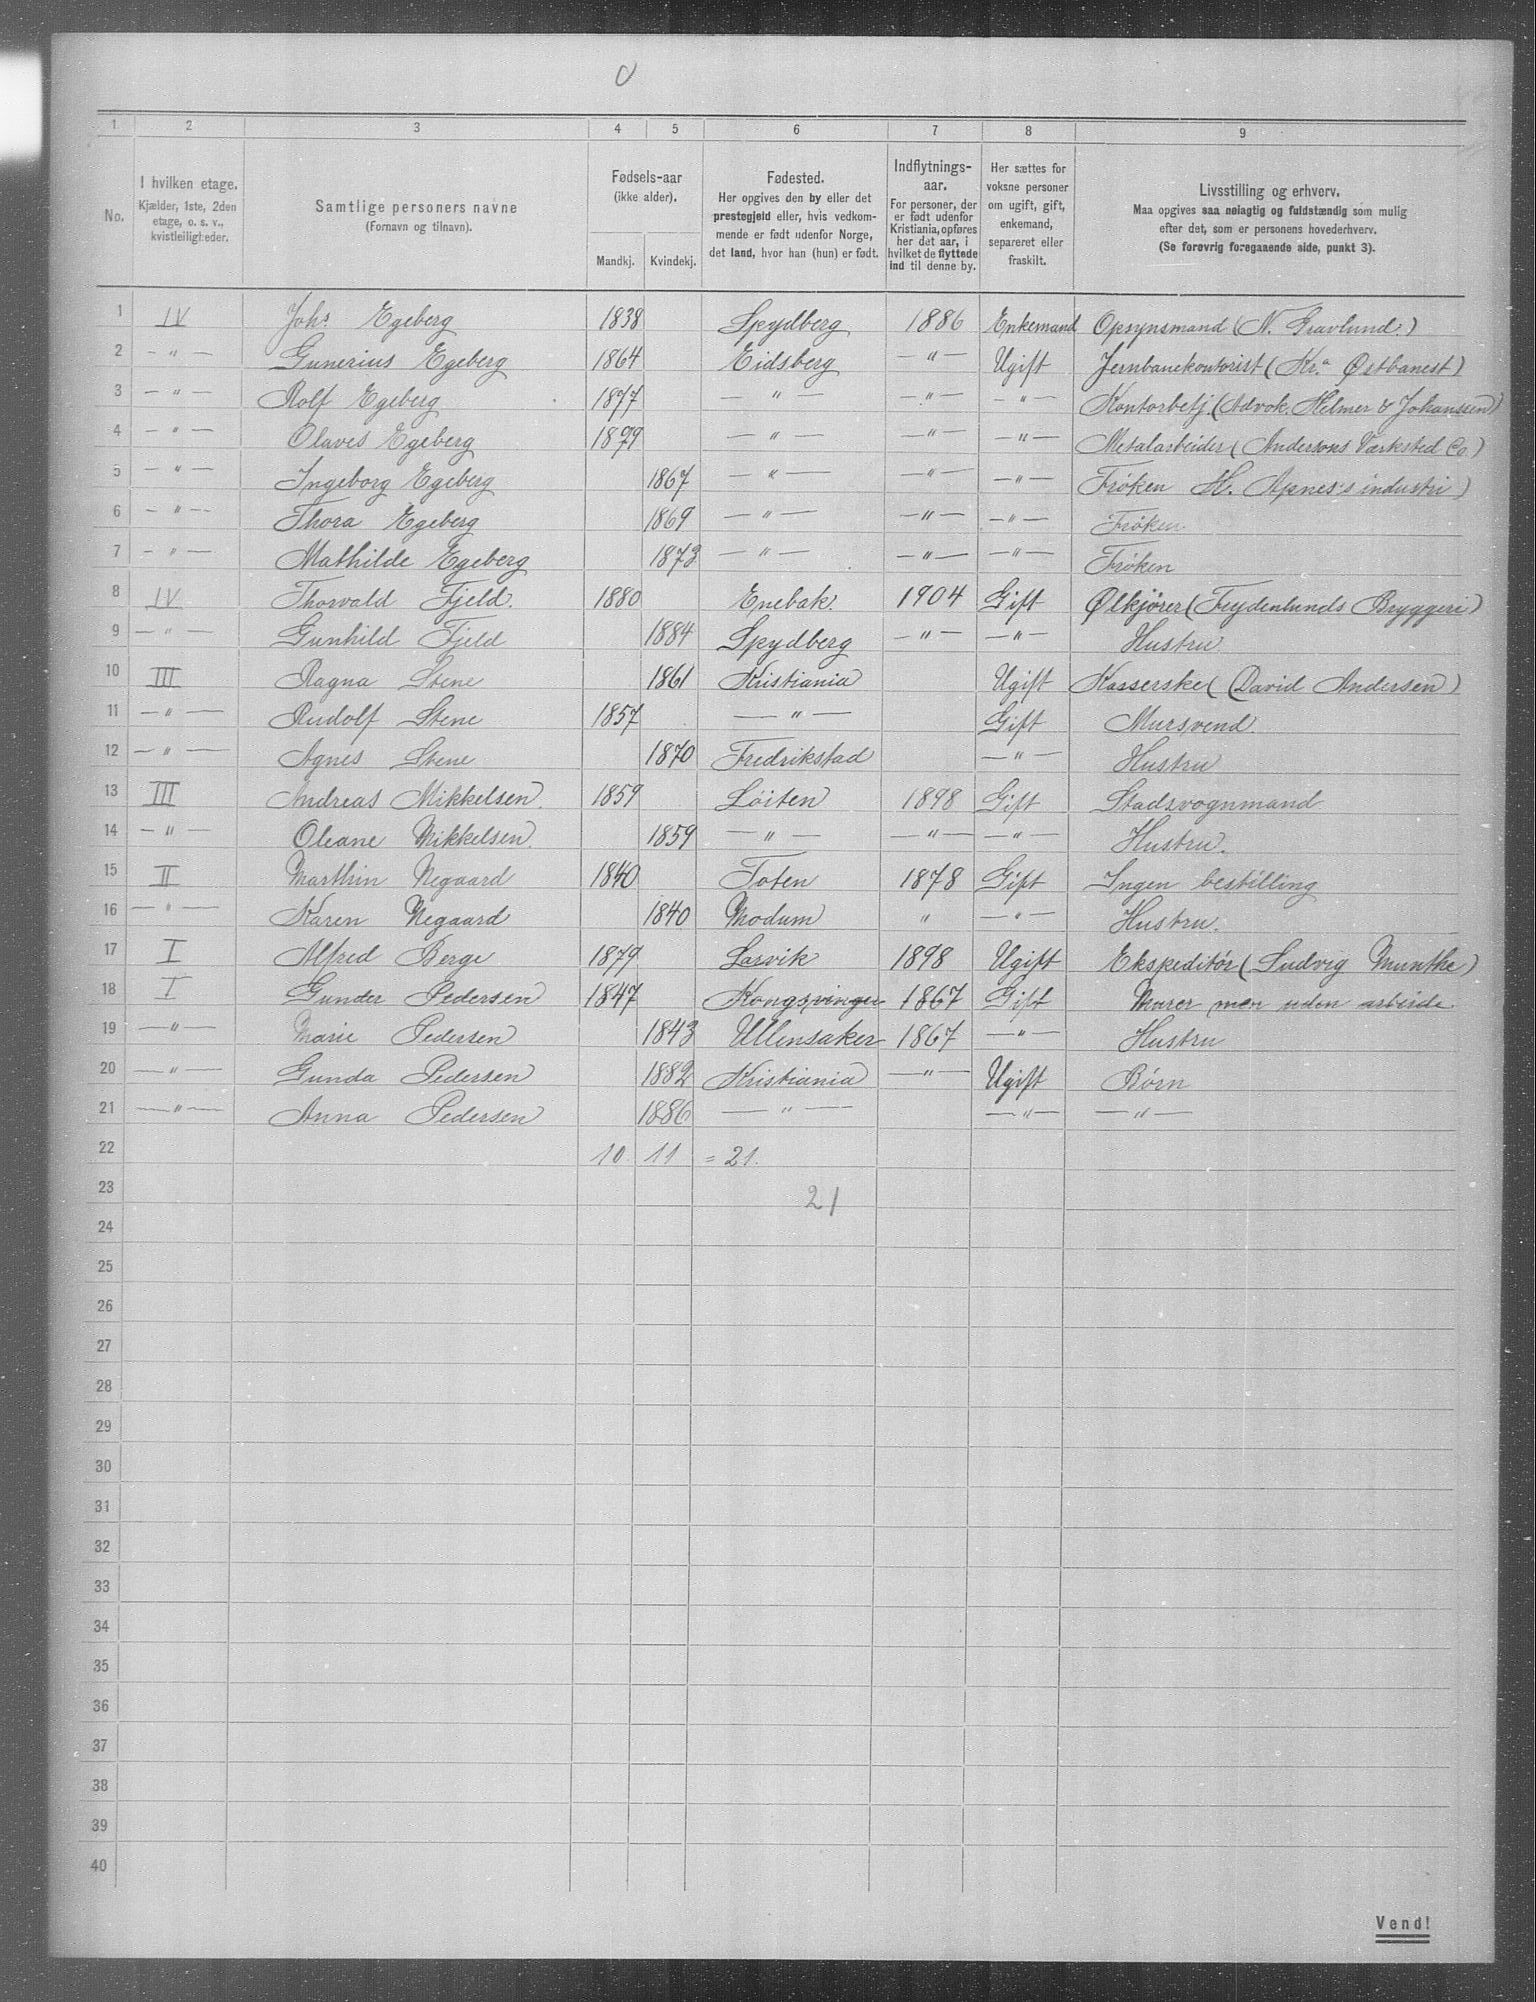 1 2 3 4 5 6 7 8 9
No. I hvilken etage. Kjælder, 1ste, 2den etage, o. s. v., kvistleiligheder. Samtlige personers navne (Fornavn og tilnavn). Fødsels-aar (ikke alder). Mandkj. Kvindekj. Fødested. Her opgives den by eller det prestegjeld eller, hvis vedkommende er født udenfor Norge, det land, hvor han (hun) er født. Indflytnings-aar. For personer, der er født udenfor Kristiania, opføres her det aar, i hvilket de flyttede ind til denne by. Her sættes for voksne personer om ugift, gift, enkemand, separeret eller fraskilt. Livsstilling og erhverv. Maa opgives saa nøiagtig og fuldstændig som mulig efter det, som er personens hovederhverv. (Se forøvrig foregaaende side, punkt 3).
1 IV Johs. Egeberg 1838 Spydberg 1886 Enkemand Opsynsmand (N. Gravlund.)
2 — " — Gunerius Egeberg 1864 Eidsberg — " — Ugift Jernbanekontorist (Kr.a Østbanest)
3 — " — Rolf Egeberg 1877 — " — — " — — " — Kontorbetj. (Advok. Helmer & Johanssen)
4 — " — Olaves Egeberg 1879 — " — — " — — " — Metalarbeider (Andersons Værksted Co.)
5 — " — Ingeborg Egeberg 1867 — " — — " — — " — Frøken H. industri)
6 — " — Thora Egeberg 1869 — " — — " — — " — Frøken
7 — " — Mathilde Egeberg 1873 — " — — " — — " — Frøken
8 IV Thorvald Fjeld. 1880 Enebak. 1904 Gift Ølkjører (Frydenlunds Bryggeri)
9 — " — Gunhild Fjeld 1884 Spydberg — " — — " — Hustru
10 III Ragna Stene 1861 Kristiania Ugift Kasserske (David Andersen)
11 — " — Rudolf Stene 1857 — " — Gift Mursvend.
12 — " — Agnes Stene 1870 Fredrikstad — " — Hustru
13 III Andreas Mikkelsen. 1859 Løiten 1898 Gift Stadsvognmand
14 — " — Oleane Mikkelsen. 1859 — " — — " — — " — Hustru.
15 II Marthin Negaard 1840 Toten 1878 Gift Ingen bestilling
16 — " — Karen Negaard 1840 Modum " — " — Hustru.
17 I Alfred Berge 1879 Larvik 1898 Ugift Ekspeditør (Ludvig Munthe)
18 I Gunder Pedersen 1847 Kongsvinger 1867 Gift Murer men uden arbeide
19 — " — Marie Pedersen 1843 Ullensaker 1867 — " — Hustru
20 — " — Gunda Pedersen 1882 Kristiania — " — Ugift Børn
21 — " — Anna Pedersen 1886 — " — — " — — " —
22 10 11 = 21.
23 21
24
25
26
27
28
29
30
31
32
33
34
35
36
37
38
39
40
Vend!